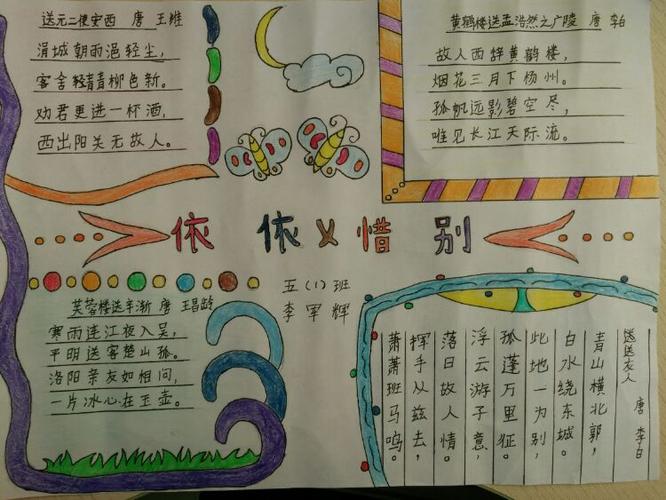 送元二使安西 唐 王维
涓城朝雨浥轻尘,
客舍轻青青柳色新。
劝君更进一杯酒,
西出阳关无故人。
黄鹤楼送孟浩然之广陵 唐 李白
故人西辞黄鹤楼,
烟花三月下杨州。
孤帆远影碧空尽,
唯见长江天际流。
依依惜别
五(1)班
李军辉
芙蓉楼送辛渐 唐 王昌龄
寒雨连江夜入吴,
平明送客楚山孤。
洛阳亲友如相问,
一片冰心在玉壶。
送友人 唐 李白
青山横北郭,
白水绕东城。
此地一为别,
孤蓬万里征。
浮云游子意,
落日故人情。
挥手从兹去,
萧萧班马鸣。